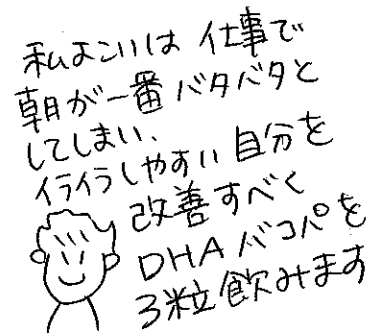 私よこいは 仕事で
朝が一番 バタバタと
してしまい、
イライラしやすい 自分を
改善すべく
DHAバコパを
3粒飲みます